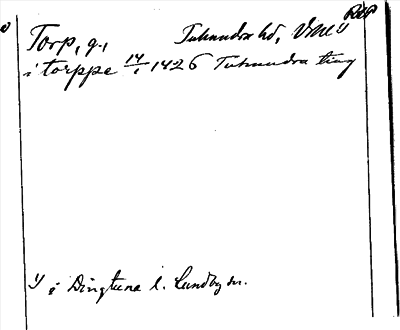 RÄP
Torp, g., Tuhundra hd, Vml
i torppe 14/1 1426 Tuhundra ting
y i Dingtuna l. Lundby sn.